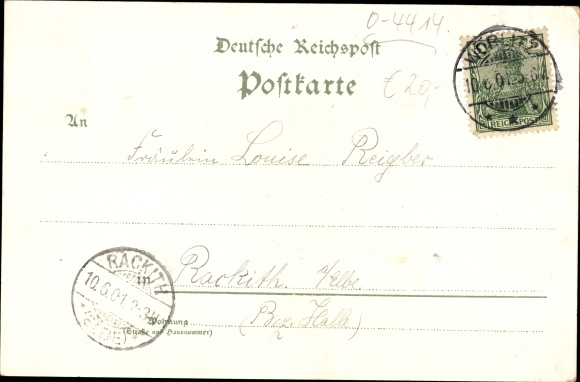 O-4414.
Deutsche Reichspost
Postkarte
£ 20,-
WÖRLITZ
10.6.01.
REICHSPOST
An
Fräulein Louise Reigber
in Rackith. /Elbe.
(Bez. Halle)
RACKITH
10.6.01.
(ELBE)
Wohnung
(Straße und Hausnummer)